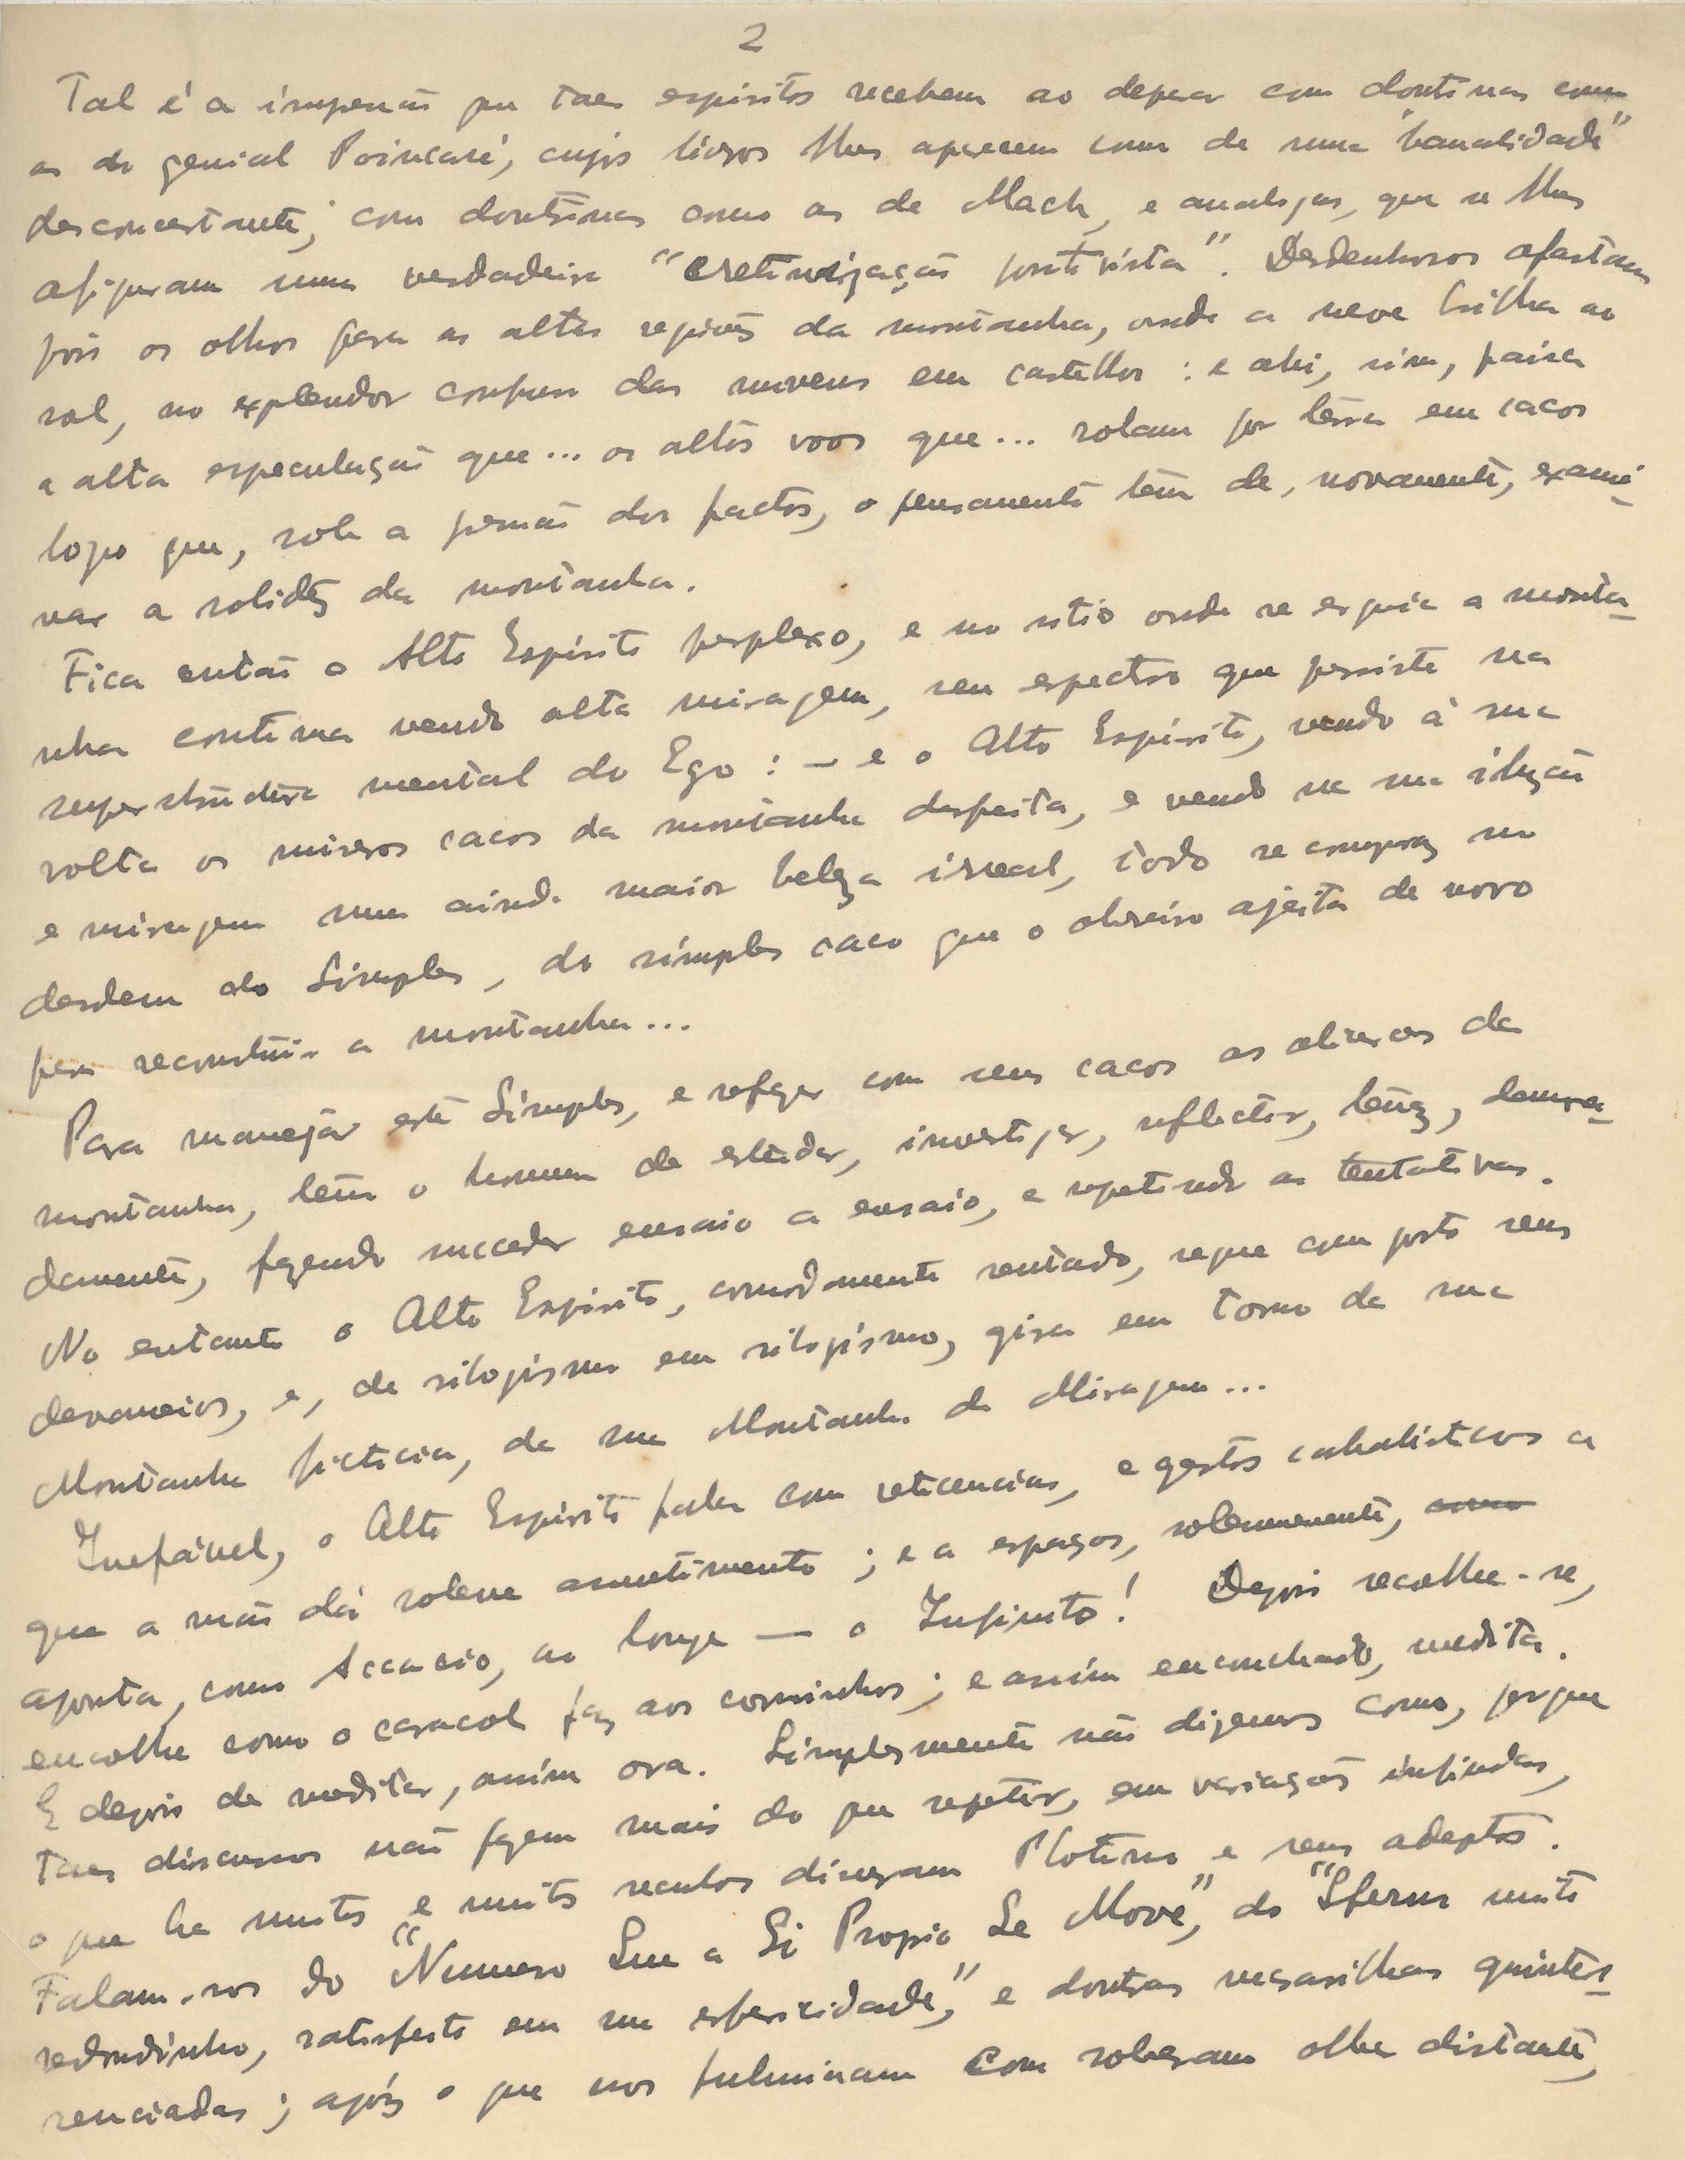 2
Tal é a impressão que taes espiritos recebem ao deparar com doutrinas como
as do genial Poincaré, cujos livros lhes aparecem como de uma "banalidade"
desconcertante; com doutrinas como as de Mach, e analogas, que se lhes
afiguram uma verdadeira "cretinização positivista". Desdenhosos afastam
pois os olhos para as altas regiões da montanha, onde a neve brilha ao
sol, no explendor confuso das nuvens em castellos: e ahi, sim, paira
a alta especulação que... os altos voos que... rolam por terra em cacos
logo que, sob a pressão dos factos, o pensamento têm de, novamente, exami-
nar a solidez da montanha.
Fica então o Alto Espirito perplexo, e no sitio onde se erguia a monta-
nha continua vendo alta miragem, seu espectro que persiste na
superstructura mental do Ego: – e o Alto Espirito, vendo á sua
volta os miseros cacos da montanha desfeita, e vendo na sua ilusão
e miragem uma ainda maior beleza irreal, todo se compraz no
desdem do Simples, do simples caco que o obreiro ajeita de novo
para reconstruir a montanha...
Para manejar este Simples, e refazer com seus cacos os alicerces da
montanha, têm o homem de estudar, investigar, reflectir, tenaz, demora-
damente, fazendo succeder ensaio a ensaio, e repetindo as tentativas.
No entanto o Alto Espirito, comodamente sentado, segue com gosto seus
devaneios, e, de silogismo em silogismo, gira em torno da sua
Montanha ficticia, da sua Montanha de Miragem...
Inefável, o Alto Espirito fala com reticencias, e gestos cabalisticos a
que a mão dá solene assentimento; e a espaços, solennemente, como
aponta, como Accacio, ao longe — o Infinito! Depois recolhe-se,
encolhe como o caracol faz aos corninhos; e assim enconchado, medita.
E depois de meditar, assim ora. Simplesmente não dizemos como, porque
taes discursos não fazem mais do que repetir, em variações infindas,
o que ha muitos e muitos seculos disseram Plotino e seus adeptos.
Falam-nos do "Numero Que a Si Propio Se Move", do "Sferus muito
redondinho, satisfeito em sua esfericidade", e doutras maravilhas quintes-
senciadas; após o que nos fulminam com soberano olhar distante,